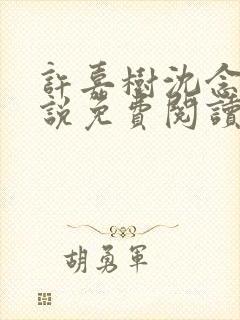 許嘉樹沈念
說免費閱讀
胡勇軍